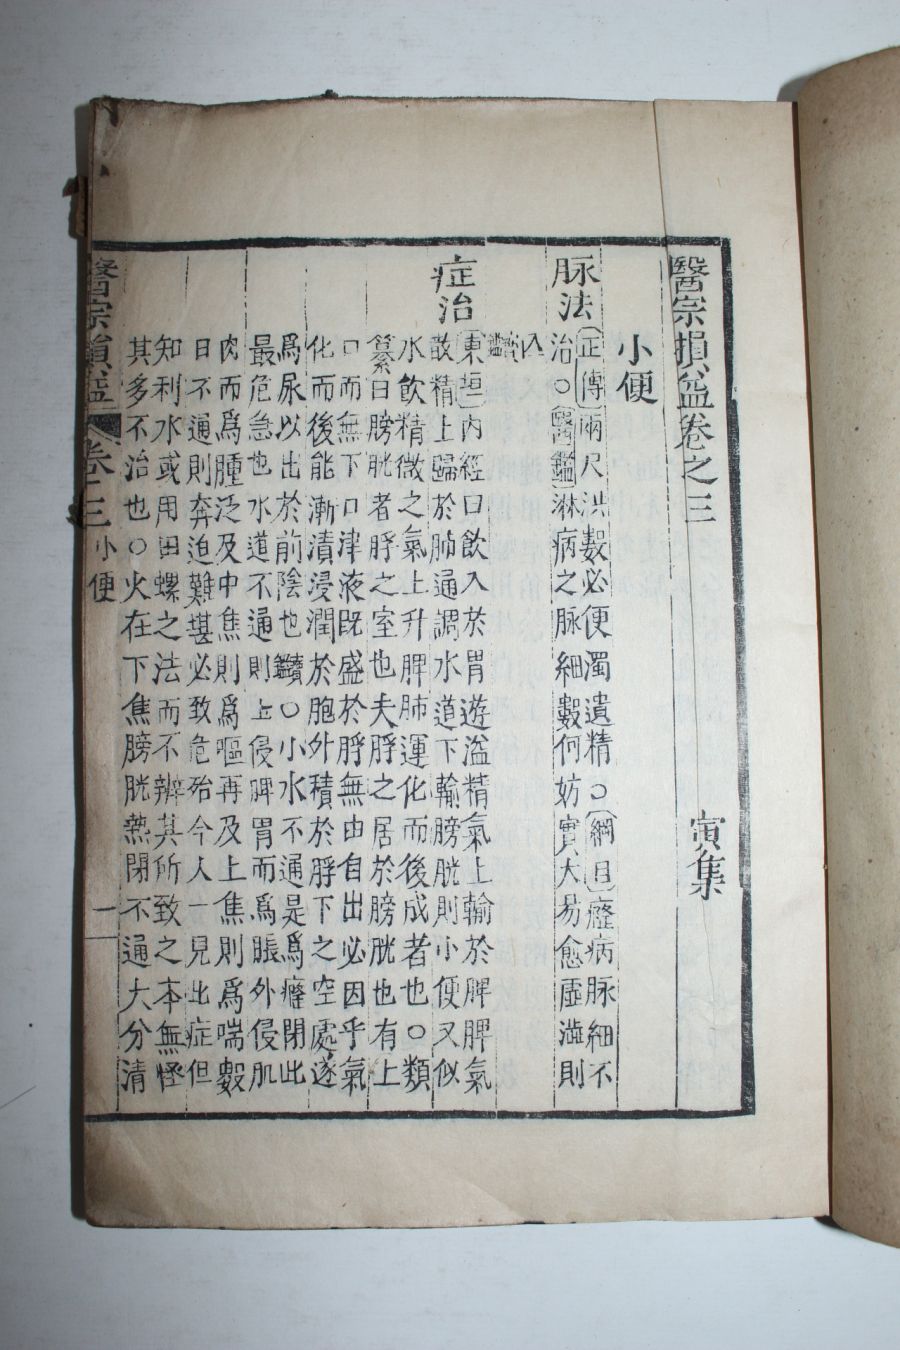 醫宗損益卷之三 寅集
小便
脉法
正傳 兩尺洪數必便濁遺精○ 綱目 癃病脉細不
治○ 醫鑑 淋病之脉細數何妨實大易愈虛澁則
入
症治
東垣 內經曰飮入於胃遊溢精氣上輸於脾脾氣
散精上歸於肺通調水道下輸膀胱則小便又似
水飮精微之氣上升脾肺運化而後成者也○類
纂曰膀胱者脬之室也夫脬之居於膀胱也有上
口而無下口津液旣盛於脬無由自出必因乎氣
化而後能漸漬浸潤於胞外積於脬下之空處遂
爲尿以出於前陰也 ○小水不通是爲癃閉此
最危急也水道不通則上侵脾胃而爲脹外侵肌
肉而爲腫泛及中焦則爲嘔再及上焦則爲喘數
日不通則奔迫難堪必致危殆今人一見此症但
知利水或用田螺之法而不辨其所致之本無怪
其多不治也○火在下焦膀胱熱閉不通大分淸
醫宗損益 卷三 小便 一